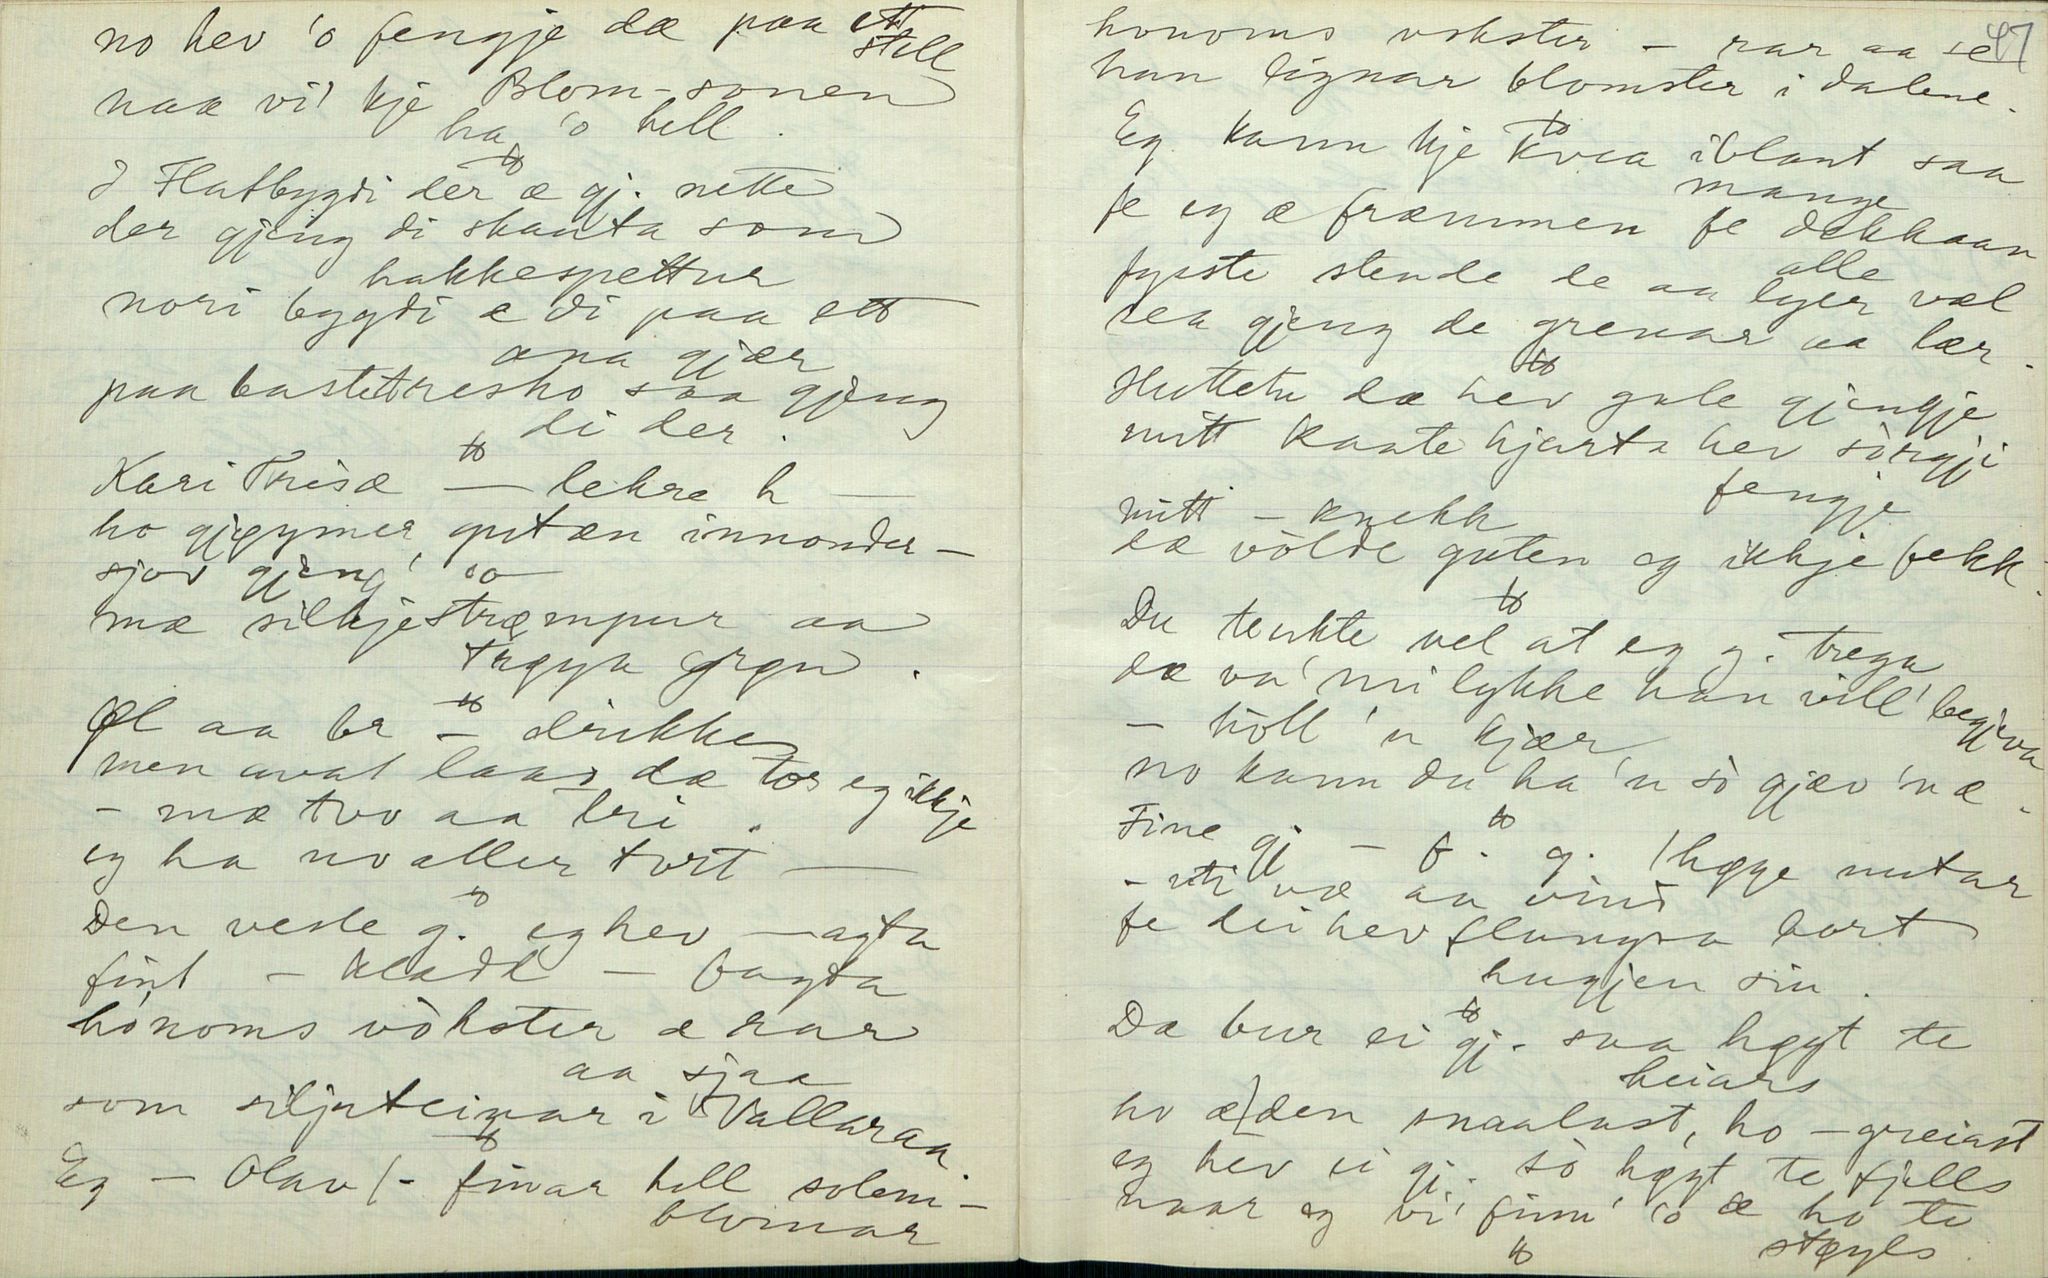 no hev 'o fengje dæ paa ett
stell
naa vi' kje Blom-sonen
ha 'o hell.
I Flatbygdi dèr æ gj. nette
der gjeng di skanta som
hakkespettur
nori bygdi æ di paa ett
ana gjær
paa bastetresko saa gjeng
di der.
Kari Trisæ — lekre h —
ho gjøymer gutæn innonder —
sjov gjeng 'o
mæ silkjestrømpur aa
trøya grøn.
Øl aa br — drikke
men avat laas dæ tor eg ikkje
— mæ tvo aa tri.
eg ha no aller tort —
Den vesle g. eg hev — agta
fint — klædt — bagta
hònoms vòkster æ rar
aa sjaa
som siljuteinar i Vallaraa.
Eg — Olav /- finar hell soleni-
blomar
47
honoms vokster — rar aa se
han lignar blomster i dalene.
Eg kann kje kvea iblant saa
mange
fe eg æ fræmmen fe dekkaan
alle
fyste stende de aa lyer væl
sea gjeng de grenar aa lær.
Huttetu dæ hev gale gjengje
mitt kaate hjarta hev sòrgji
fengje
mitt — knekk
dæ vòlde guten eg ikkje fekk.
Du tenkte vel at eg g. trega
dæ va' mi lykke han vill' begjeva
— hòll 'n kjær
no kann du ha 'n sò gjæv 'n æ.
Fine gj — f. g. / høge nutar
— uti væ aa vind
fe dei hev flungra bort
hugjen sin.
Dæ bur ei gj. saa høgt te
heiars
ho æ/den snaalast, ho — greiast
eg hev ei gj. sò høgt te fjells
naar eg vi' finn' 'o æ ho te
støyls.